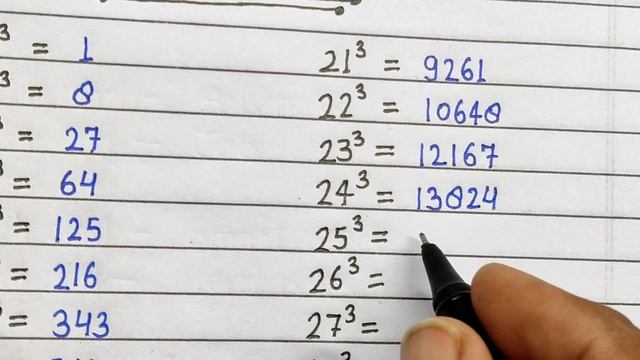 ³ = 1
³ = 8
³ = 27
³ = 64
³ = 125
= 216
= 343
21³ = 9261
22³ = 10648
23³ = 12167
24³ = 13824
25³ =
26³ =
27³ =